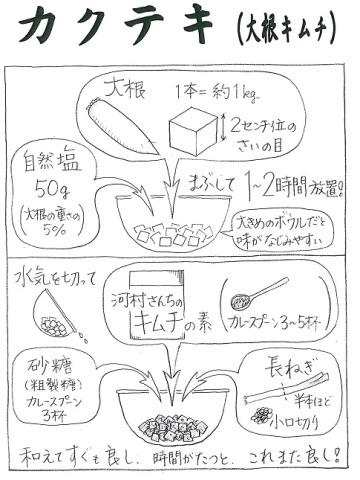 カクテキ (大根キムチ)
大根 1本=約1kg
2センチ位の
さいの目
自然塩
50g
(大根の重さの
5%)
まぶして 1~2時間放置!
大きめのボウルだと
味がなじみやすい
水気を切って
河村さんちの
キムチの素
カレースプーン3~5杯
砂糖
(粗製糖)
カレースプーン
3杯
長ねぎ
半本ほど
小口切り
和えてすぐも良し、時間がたつと、これまた良し!